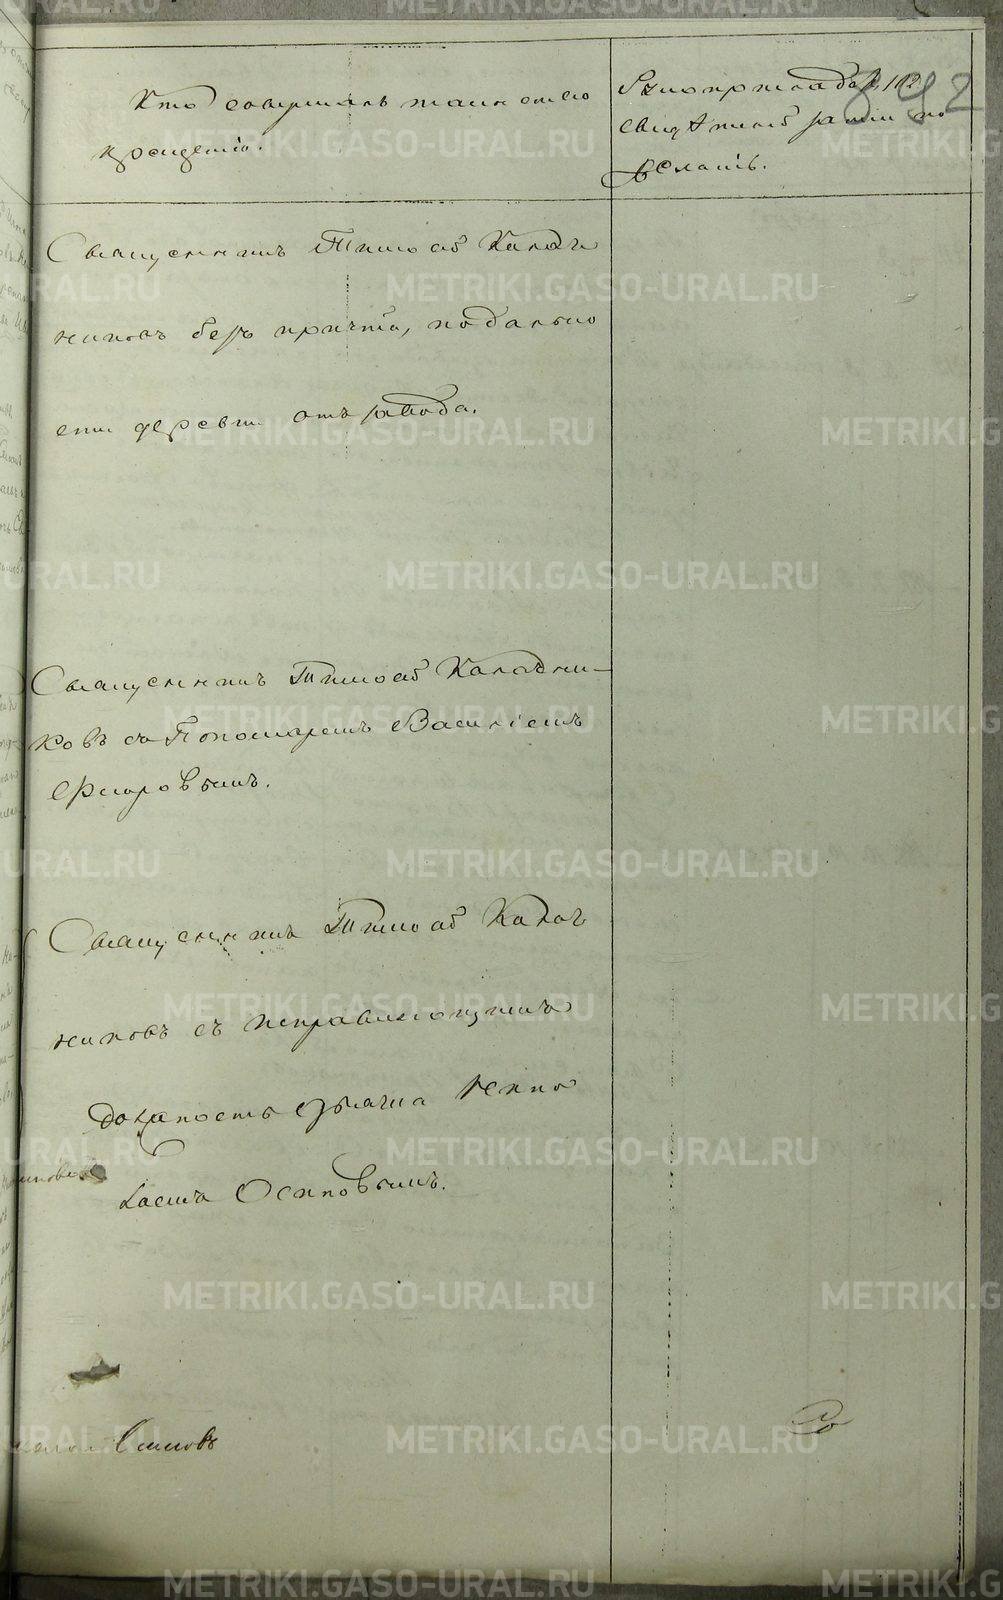 Кто совершалъ таинство
крещенія.
Рукоприкладст
свидѣтелей записи по
желанію.
892
Священникъ Тимоѳей Калач
никовъ безъ причта, по дально
сти деревни отъ завода.
Священникъ Тимоѳей Калачни-
ковъ съ Пономаремъ Василіемъ
Флоровымъ.
Священникъ Тимоѳей Калач
никовъ съ исправляющимъ
должность дьячка Никко
лаемъ Осиповымъ.
Осиповъ
Со
METRIKI.GASO-URAL.RU